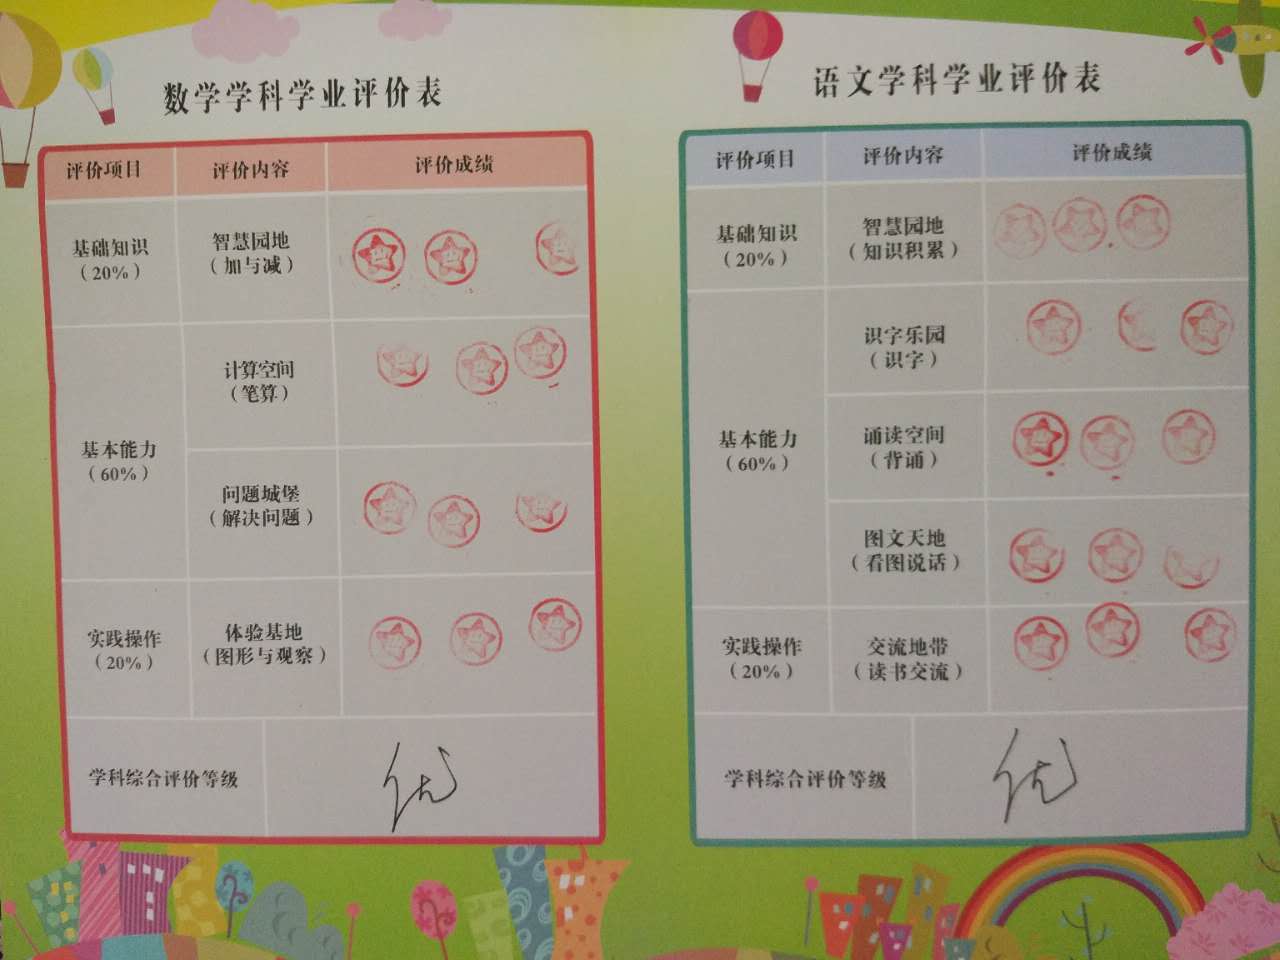 数学学科学业评价表
评价项目 评价内容 评价成绩
基础知识
（20%）
智慧园地
（加与减）
基本能力
（60%）
计算空间
（笔算）
问题城堡
（解决问题）
实践操作
（20%）
体验基地
（图形与观察）
学科综合评价等级 优
语文学科学业评价表
评价项目 评价内容 评价成绩
基础知识
（20%）
智慧园地
（知识积累）
基本能力
（60%）
识字乐园
（识字）
诵读空间
（背诵）
图文天地
（看图说话）
实践操作
（20%）
交流地带
（读书交流）
学科综合评价等级 优